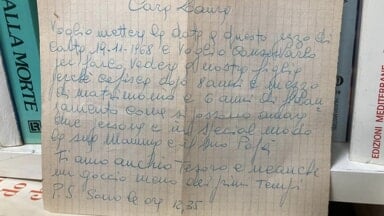 Caro Lauro
Voglio mettere la data a questo pezzo di
carta 19-11-1968 e voglio conservarlo
per farlo vedere a nostro figlio
perché capisca dopo 8 anni e mezzo
di matrimonio e 6 anni di
come si possono amare
due persone e in special modo
la sua Mamma e il suo Papà
Ti amo anch'io Tesoro e neanche
un goccio meno dei primi tempi
P.S. Sono le ore 12,35
ALLA MORTE
EDIZIONI MEDITERRANEE